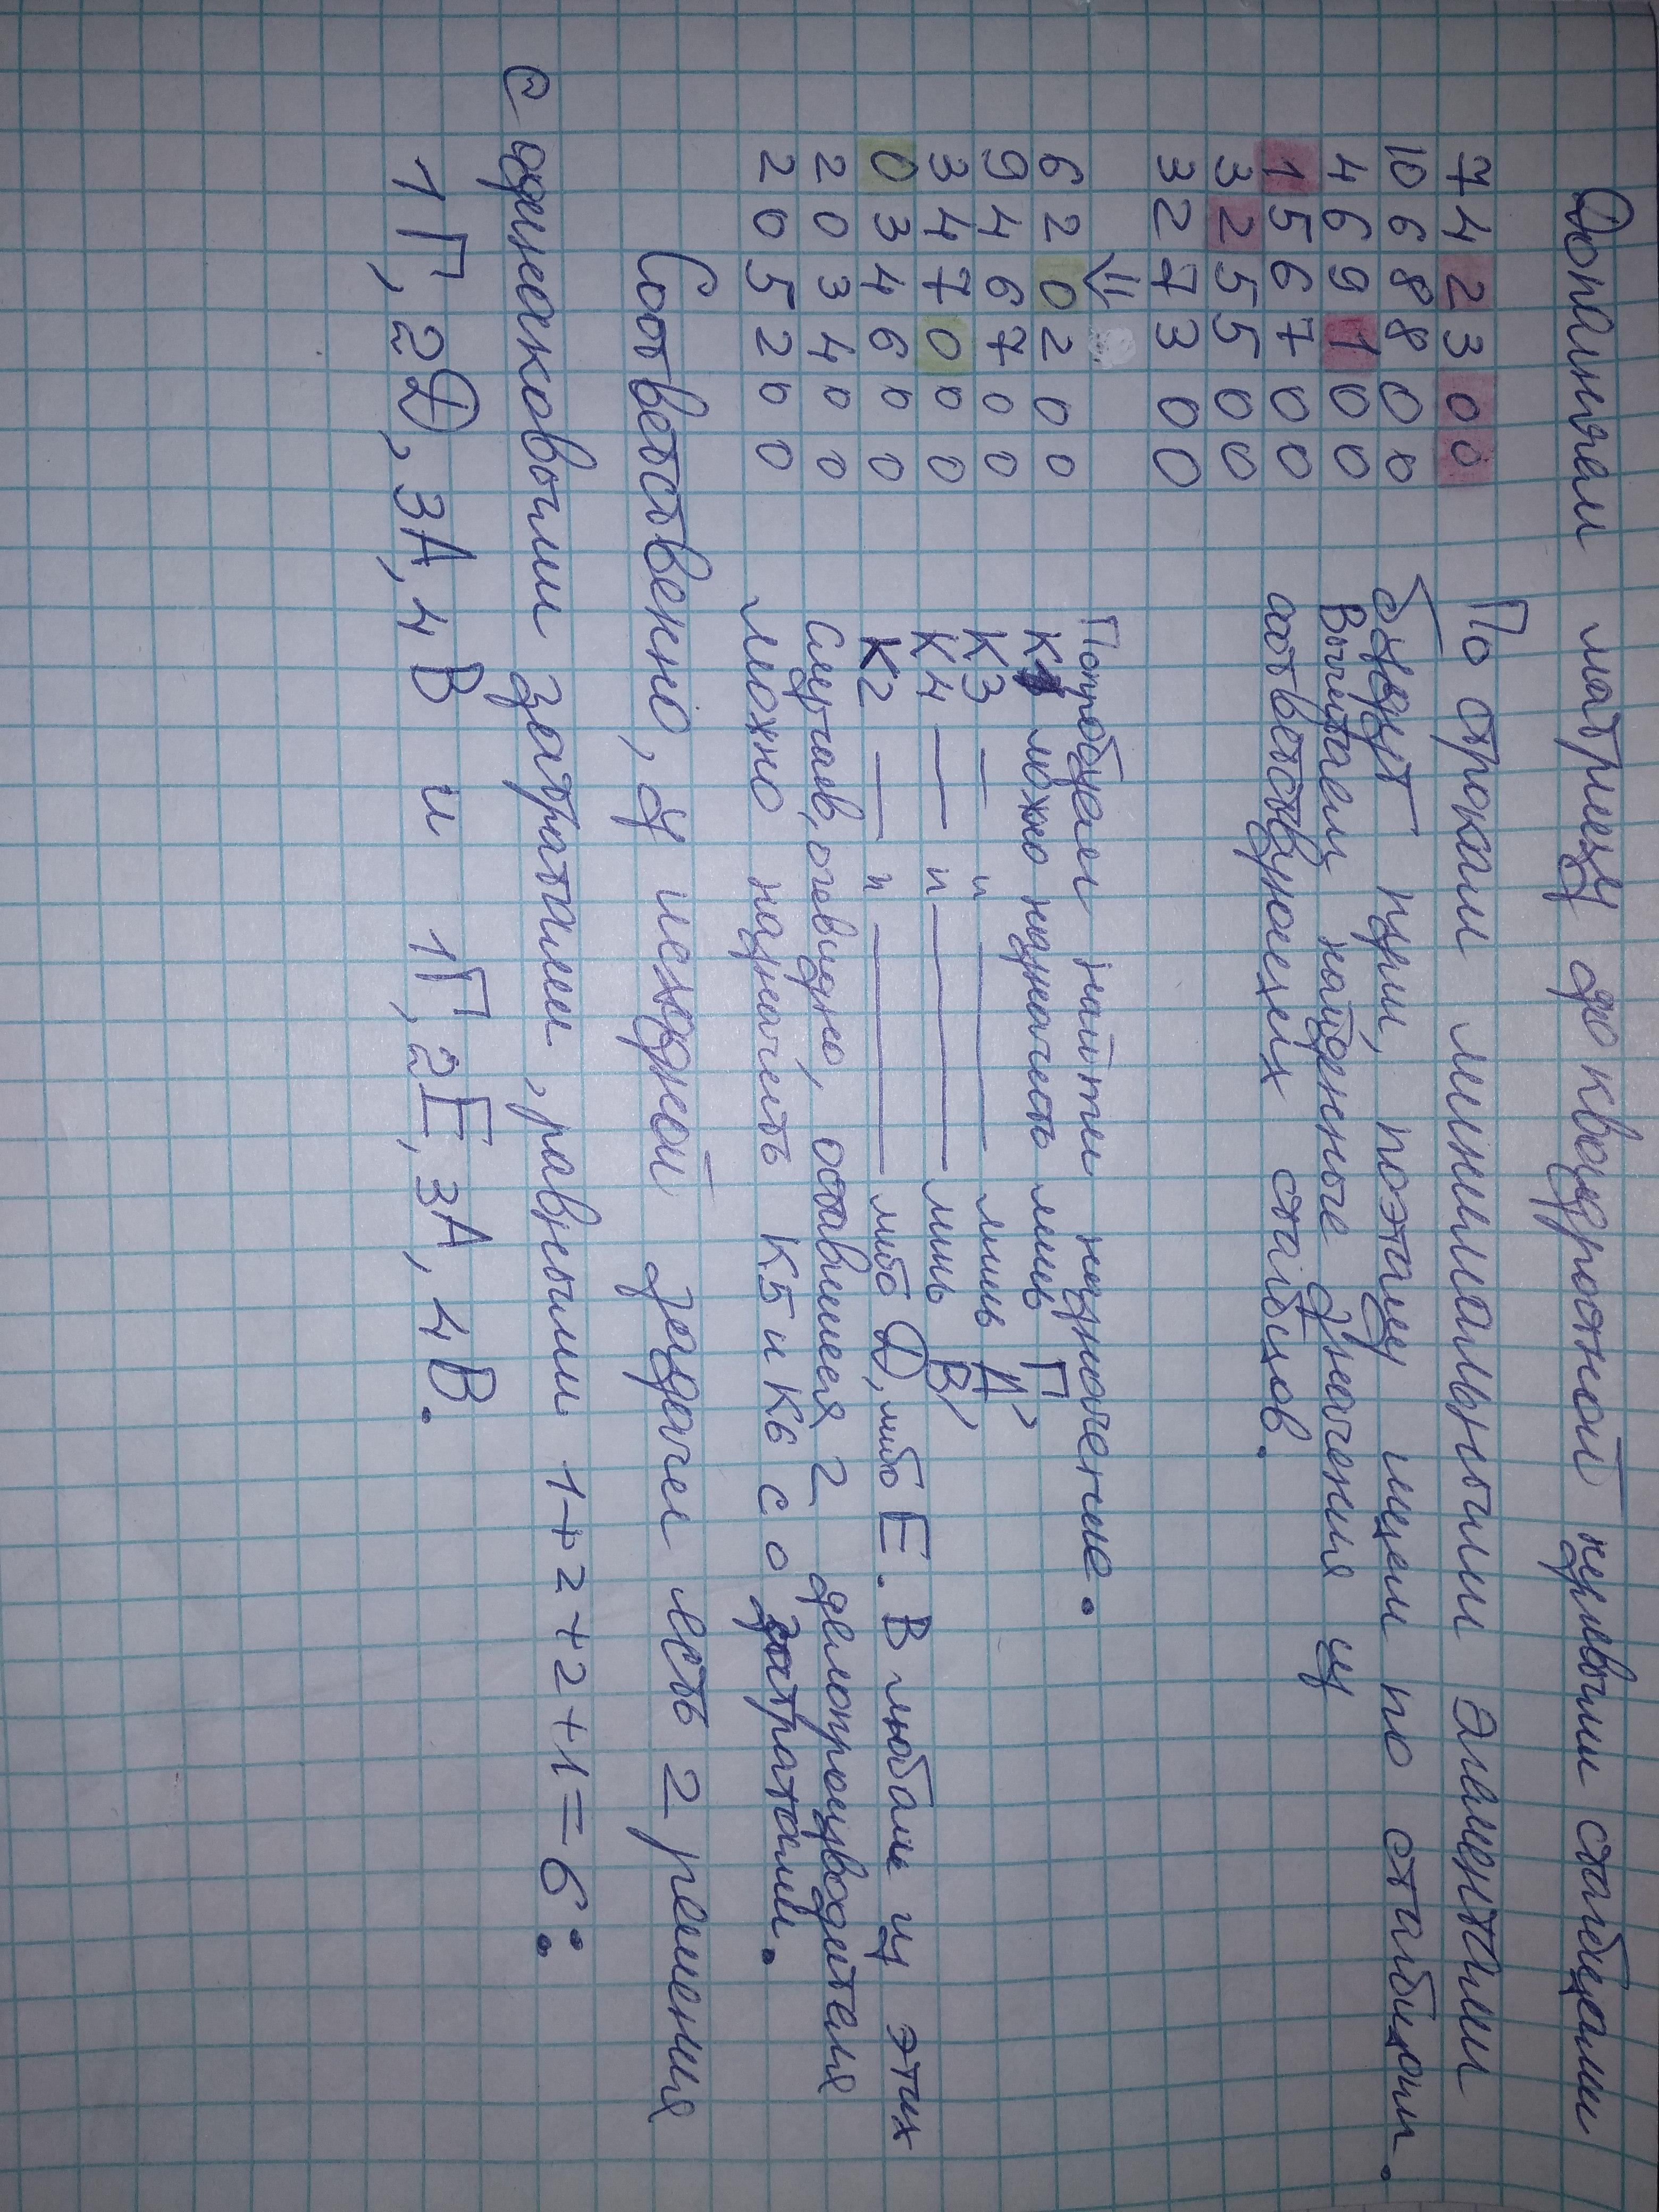 Дополняем матрицу до квадратной нулевыми столбцами
7 4 2 3 0 0
10 6 8 8 0 0
4 6 9 1 0 0
1 5 6 7 0 0
3 2 5 5 0 0
3 2 7 3 0 0
По строкам минимальными элементами
будут нули, поэтому ищем по столбцам.
Вычитаем найденные значения из
соответствующих столбцов.
⇓
6 2 0 2 0 0
9 4 6 7 0 0
3 4 7 0 0 0
0 3 4 6 0 0
2 0 3 4 0 0
2 0 5 2 0 0
Попробуем найти назначение.
К1 можно назначить лишь Г,
К3 — " — лишь А,
К4 — " — лишь В,
К2 — " — либо Д, либо Е. В любом из этих
случаев, очевидно, оставшиеся 2 делопроизводителя
можно назначить К5 и К6 с 0 затратами.
Соответственно, у исходной задачи есть 2 решения
с одинаковыми затратами, равными 1+2+2+1=6:
1Г, 2Д, 3А, 4В и 1Г, 2Е, 3А, 4В.